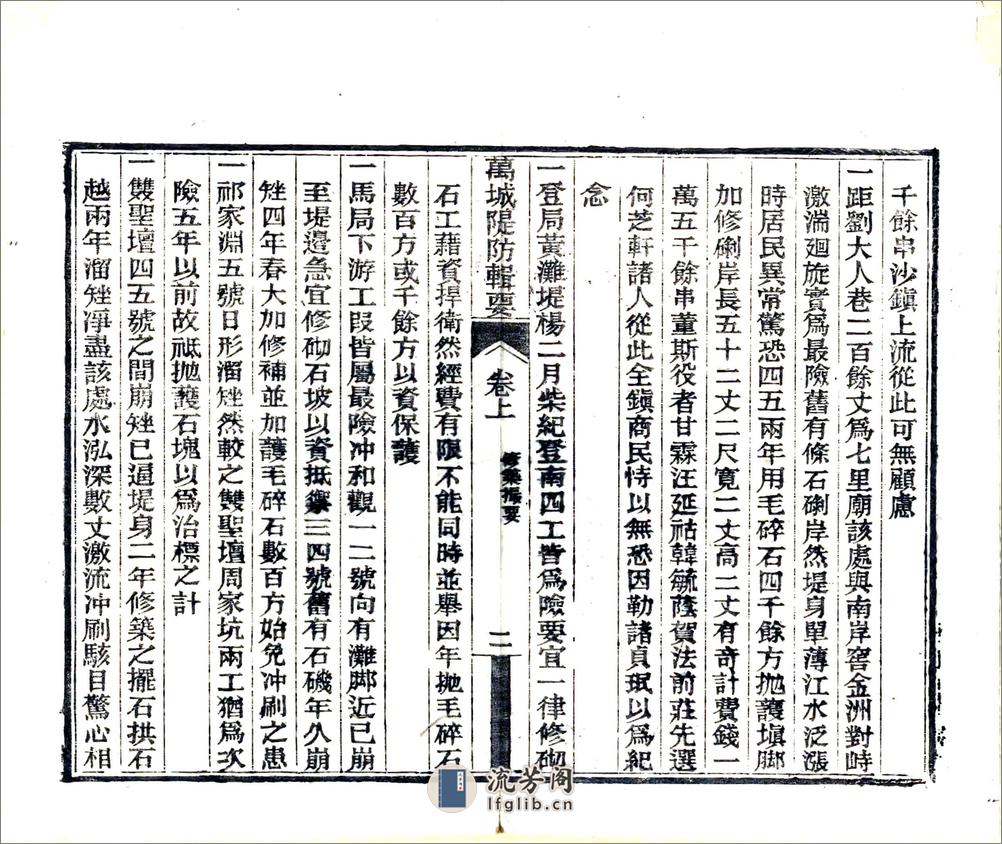 千餘串沙鎭上流從此可無顧慮
一距劉大人巷二百餘丈爲七里廟該處與南岸窖金洲對峙
激湍廻旋實爲最險舊有條石磡岸然堤身單薄江水泛漲
時居民異常驚恐四五兩年用毛碎石四千餘方抛護塡脚
加修磡岸長五十二丈二尺寬二丈高二丈有奇計費錢一
萬五千餘串董斯役者甘霖汪延祜韓毓蔭賀法前莊先選
何芝軒諸人從此全鎭商民恃以無恐因勒諸貞珉以爲紀
念
一登局黃灘堤楊二月柴紀登南四工皆爲險要宜一律修砌
萬城隄防輯要
卷上
修築撮要
二
石工藉資捍衛然經費有限不能同時並舉因年抛毛碎石
數百方或千餘方以資保護
一馬局下游工段皆屬最險冲和觀一二號向有灘脚近已崩
至堤邉急宜修砌石坡以資抵禦三四號舊有石磯年久崩
矬四年春大加修補並加護毛碎石數百方始免冲刷之患
一祁家淵五號日形溜矬然較之雙聖壇周家坑兩工猶爲次
險五年以前故祗抛護石塊以爲治標之計
一雙聖壇四五號之間崩矬已逼堤身二年修築之擺石拱石
越兩年溜矬凈盡該處水泓深數丈激流冲刷駭目驚心相
流芳阁
lfglib.cn